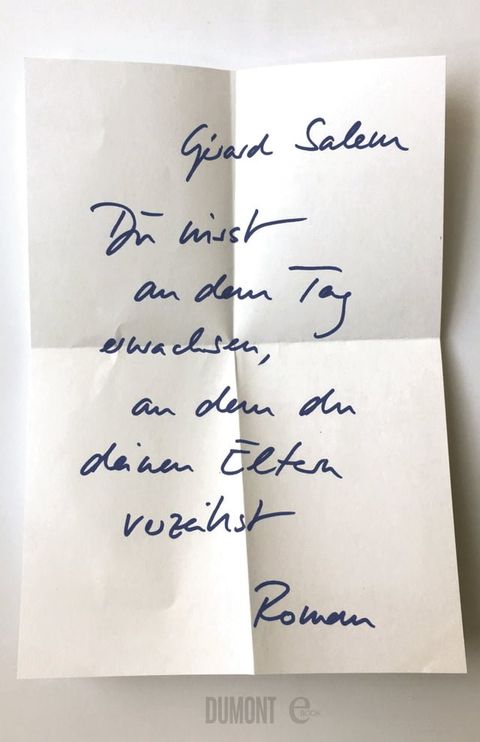 Gérard Salem
Du wirst
an dem Tag
erwachsen,
an dem du
deinen Eltern
verzeihst
Roman
DUMONT eBOOK